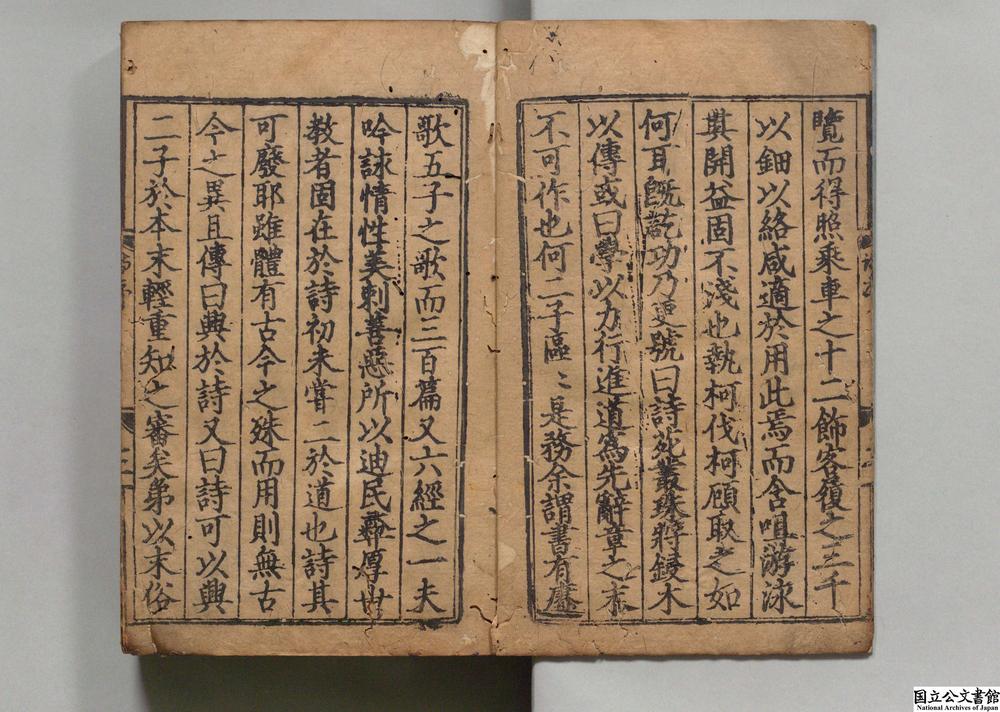 覽而得照乘車之十二飾客履之三千
以鈿以絡咸適於用此焉而含咀游泳
其開益固不淺也執柯伐柯顧取之如
何耳旣訖功乃更號曰詩苑叢珠將鋟木
以傳或曰學以力行進道爲先辭章之末
不可作也何二子區〻是務余謂書有賡
歌五子之歌而三百篇又六經之一夫
吟詠情性美刺善惡所以迪民彝厚世
教者固在於詩初未嘗二於道也詩其
可廢耶雖體有古今之殊而用則無古
今之異且傳曰興於詩又曰詩可以興
二子於本末輕重知之審矣第以末俗
国立公文書館
National Archives of Japan